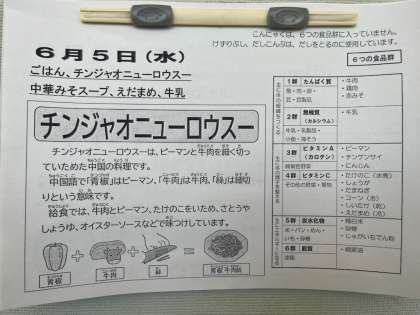 こんにゃくは、6つの食品群に入っていません。
けずりぶし、だしこんぶは、だしをとるのに使用しています。
6月5日(水)
ごはん、チンジャオニューロウスー
中華みそスープ、えだまめ、牛乳
チンジャオニューロウスー
チンジャオニューロウスーは、ピーマンと牛肉を細く切っ
ていためた中国の料理です。
中国語で「青椒」はピーマン、「牛肉」は牛肉、「絲」は細切
りという意味です。
給食では、牛肉とピーマン、たけのこをいため、さとうや
しょうゆ、オイスターソースなどで味つけしています。
青椒
牛肉
絲
青椒牛肉絲
6つの食品群
1群 たんぱく質
魚・肉・卵・
豆・豆製品
・牛肉
・鶏肉
・赤みそ
2群 無機質
(カルシウム)
牛乳・乳製品・
小魚・海そう
・牛乳
3群 ビタミンA
(カロテン)
緑黄色野菜
・ピーマン
・チンゲンサイ
・にんじん
4群 ビタミンC
その他の野菜・果物
・たけのこ(水煮)
・しょうが
・たまねぎ
・コーン(冷)
・しいたけ(乾)
・えだまめ(冷)
5群 炭水化物
米・パン・めん・
いも・砂糖
・精白米
・砂糖
・じゃがいもでん粉
6群 脂質
油脂